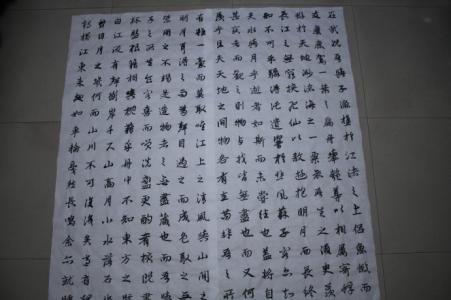 況吾與子漁樵於江渚之上侶魚蝦而
友麋鹿駕一葉之扁舟舉匏尊以相屬寄蜉
蝣於天地渺滄海之一粟哀吾生之須臾羨
長江之無窮挾飛仙以遨遊抱明月而長終
知不可乎驟得託遺響於悲風蘇子曰客亦知
夫水與月乎逝者如斯而未嘗往也盖將自
其變者而觀之則物與我皆無盡也而又何
羨乎且夫天地之間物各有主苟非吾之所
有雖一毫而莫取惟江上之清風與山間之
明月耳得之為聲目遇之而成色取之無
禁用之不竭是造物者之無盡藏也而吾
子之所共食客喜而笑洗盞更酌肴核既盡
杯盤狼籍相與枕藉乎舟中不知東方之既
白江流有聲斷岸千尺山高月小水落石出
曾日月之幾何而江山不可復識矣
鶴橫江東來翅如車輪戛然長鳴舍就